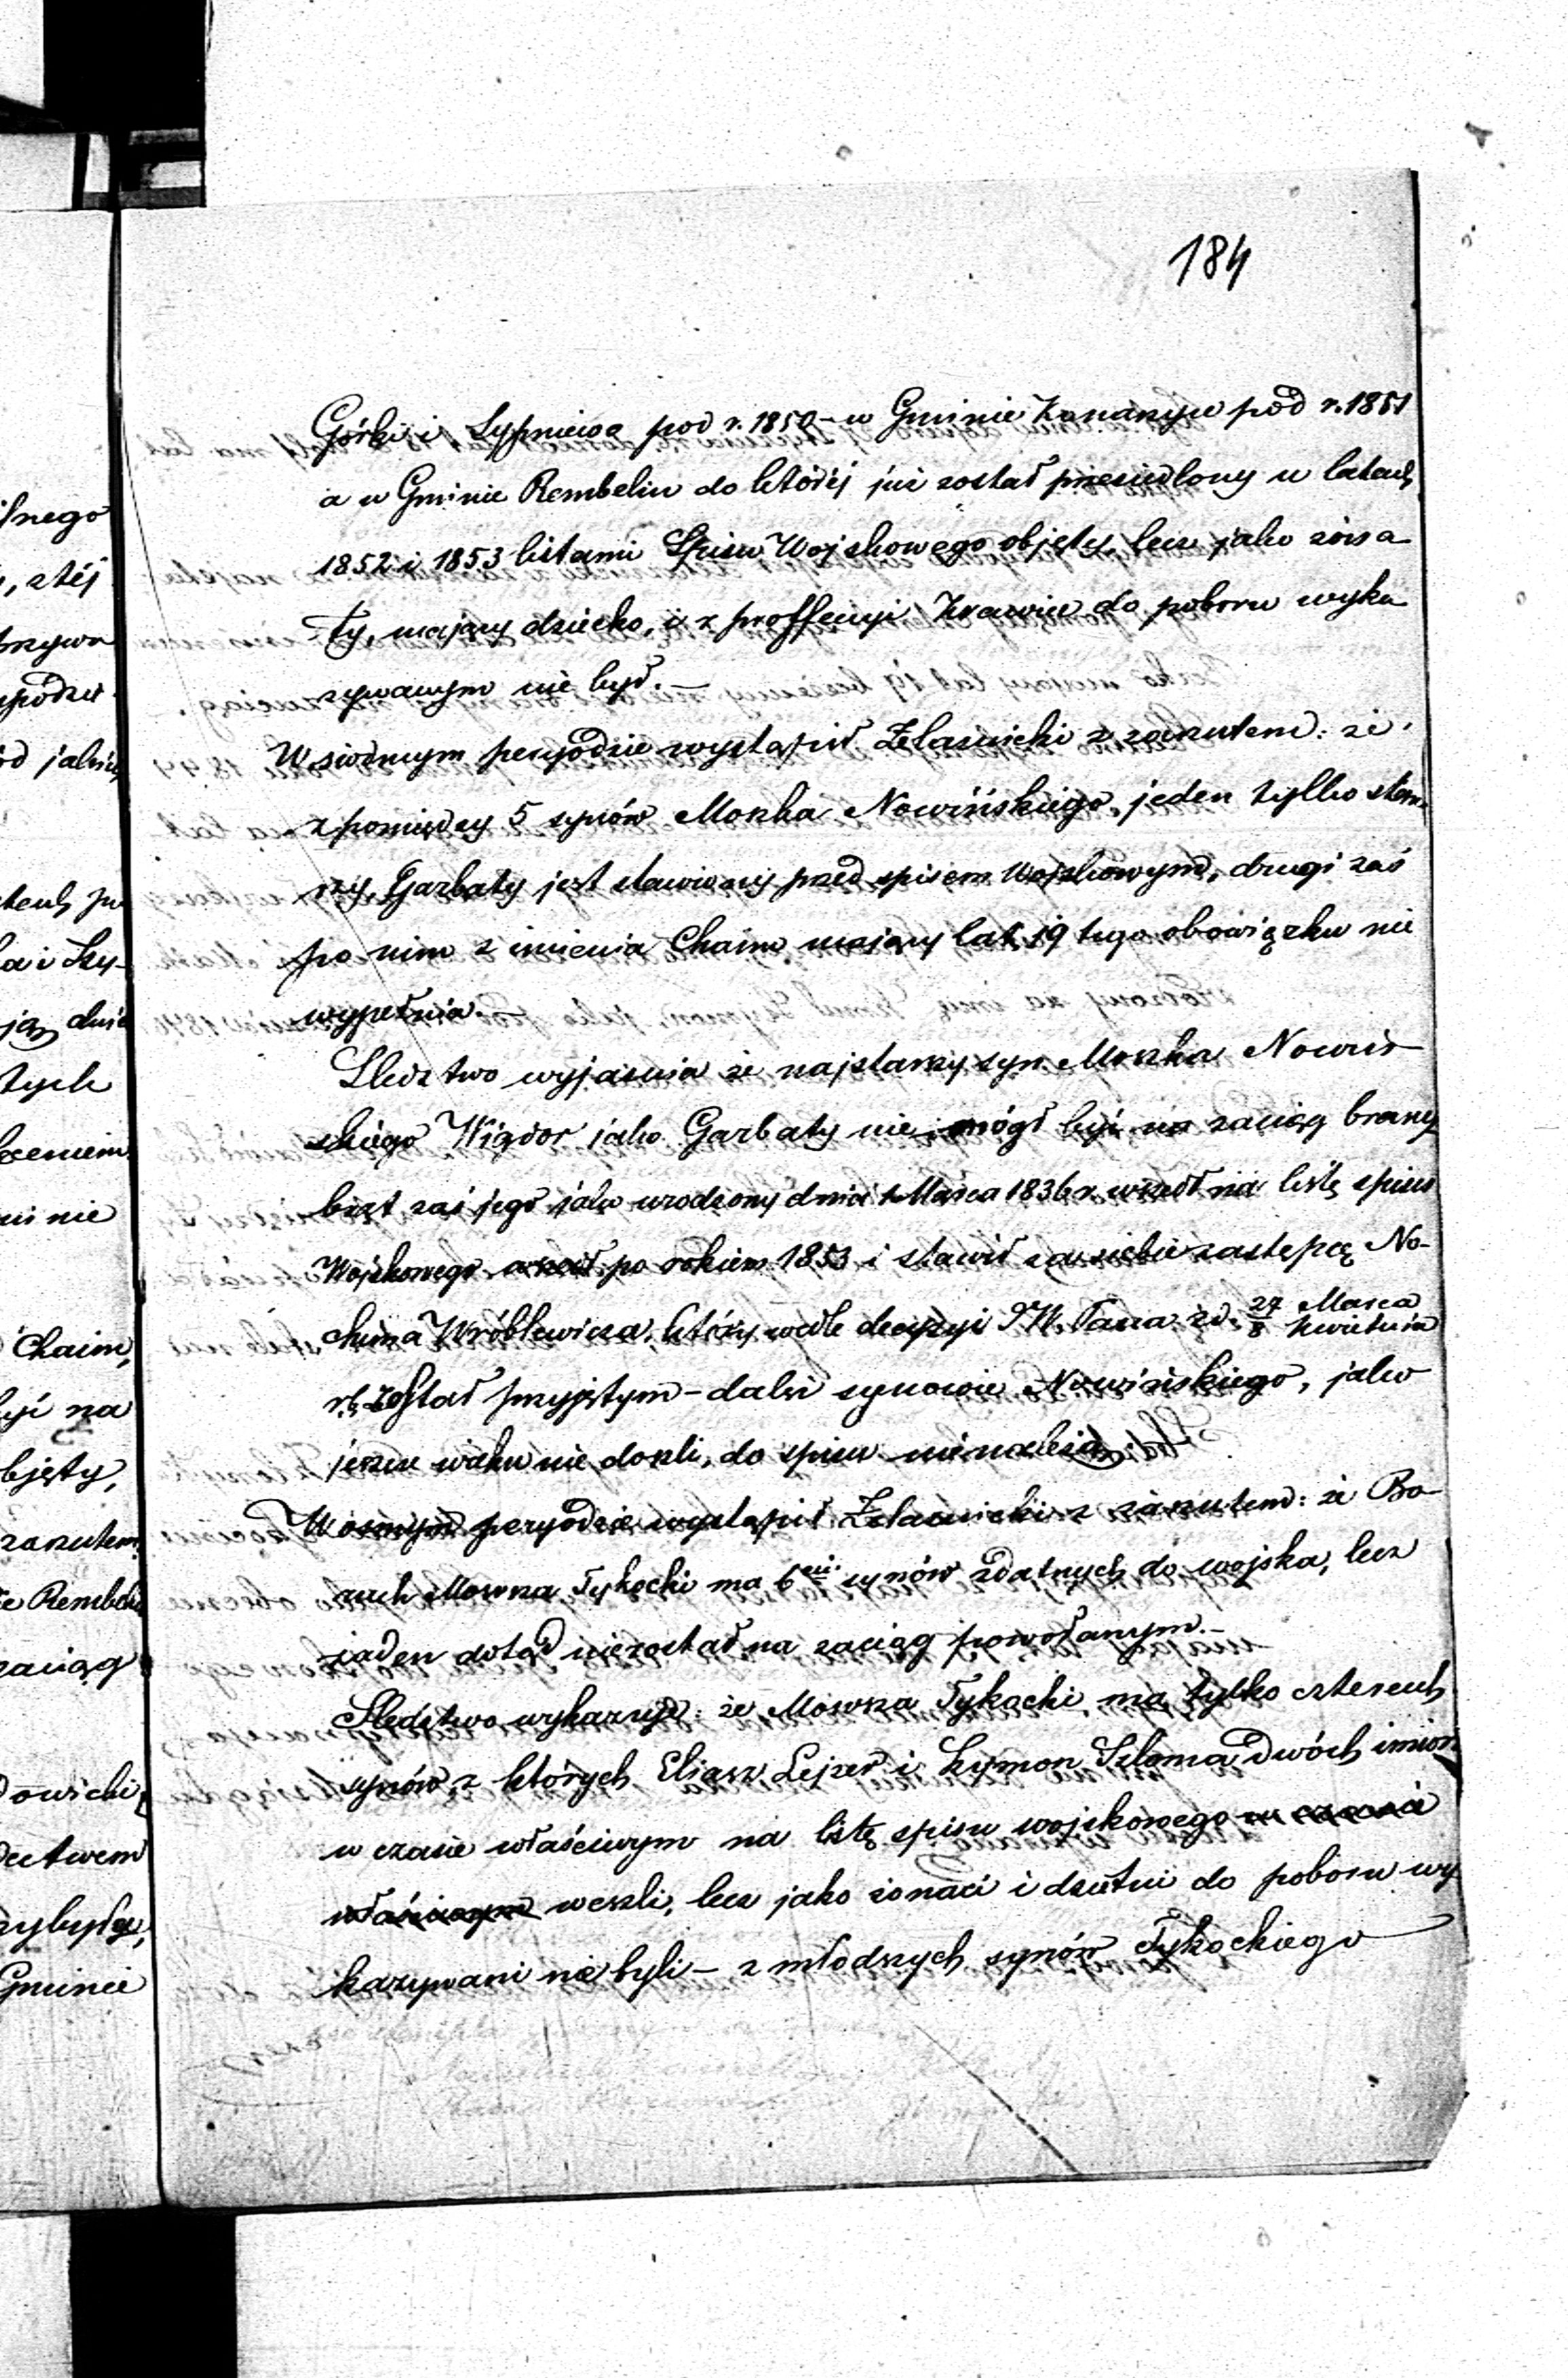 184
Górki i Lypniewo pod r. 1850 – w Gminie pod r. 1851
a w Gminie Rembelin do której już został przesiedlony w latach
1852 i 1853 listami Spisu Wojskowego objęty, lecz jako żona
ty, mający dziecko, i z proffessyi Krawiec do poboru wyka
zywanym nie był. –
W siódmym peryodzie wystąpił Żelaźnicki z zarzutem: że
z pomiędzy 5 synów Moszka Nowińskiego, jeden tylko star
szy, Garbaty jest stawiony przed spisem Wojskowym, drugi zaś
po nim z imienia Chaim mający lat 19 tego obowiązku nie
wypełnia. –
Sledztwo wyjaśnia że najstarszy syn Moszka Nowiń
skiego Wigdor jako Garbaty nie mógł być na zaciąg brany
brat zaś jego jako urodzony dnia 1 Marca 1836 r. wszedł na listę spisu
Wojskowego po rokiem 1853 i stawił za siebie zastępcę No-
chima Wróblewicza, który wedle decyzyi JW. Pana z d. 27/8 Marca/Kwietnia
r.b. został przyjętym – dalsi synowie Nowińskiego, jako
jeszcze wieku nie doszli, do spisu nie należą
W osmym peryodzie wystąpił Żelaźnicki z zarzutem: że Bo-
ruch Mowsza Tykocki ma 6ciu synów zdatnych do wojska, lecz
żaden dotąd niezostał na zaciąg powołanym. –
Sledztwo wykazuje: że Mowsza Tykocki ma tylko czterech
synów, z których Eliasz Lejzer i Szymon Szloma dwóch imion
w czasie właściwym na listę spisu wojskowego w czasie
właściwym weszli, lecz jako żonaci i dzietni do poboru wy
kazywani nie byli – z młodszych synów Tykockiego
ilnego
, z téj
trzywa
ród jakich
la i Szy-
tych
zeniem
ni nie
Chaim,
być na
bjęty,
zarzutem
zaciąg
dectwem
Gminie